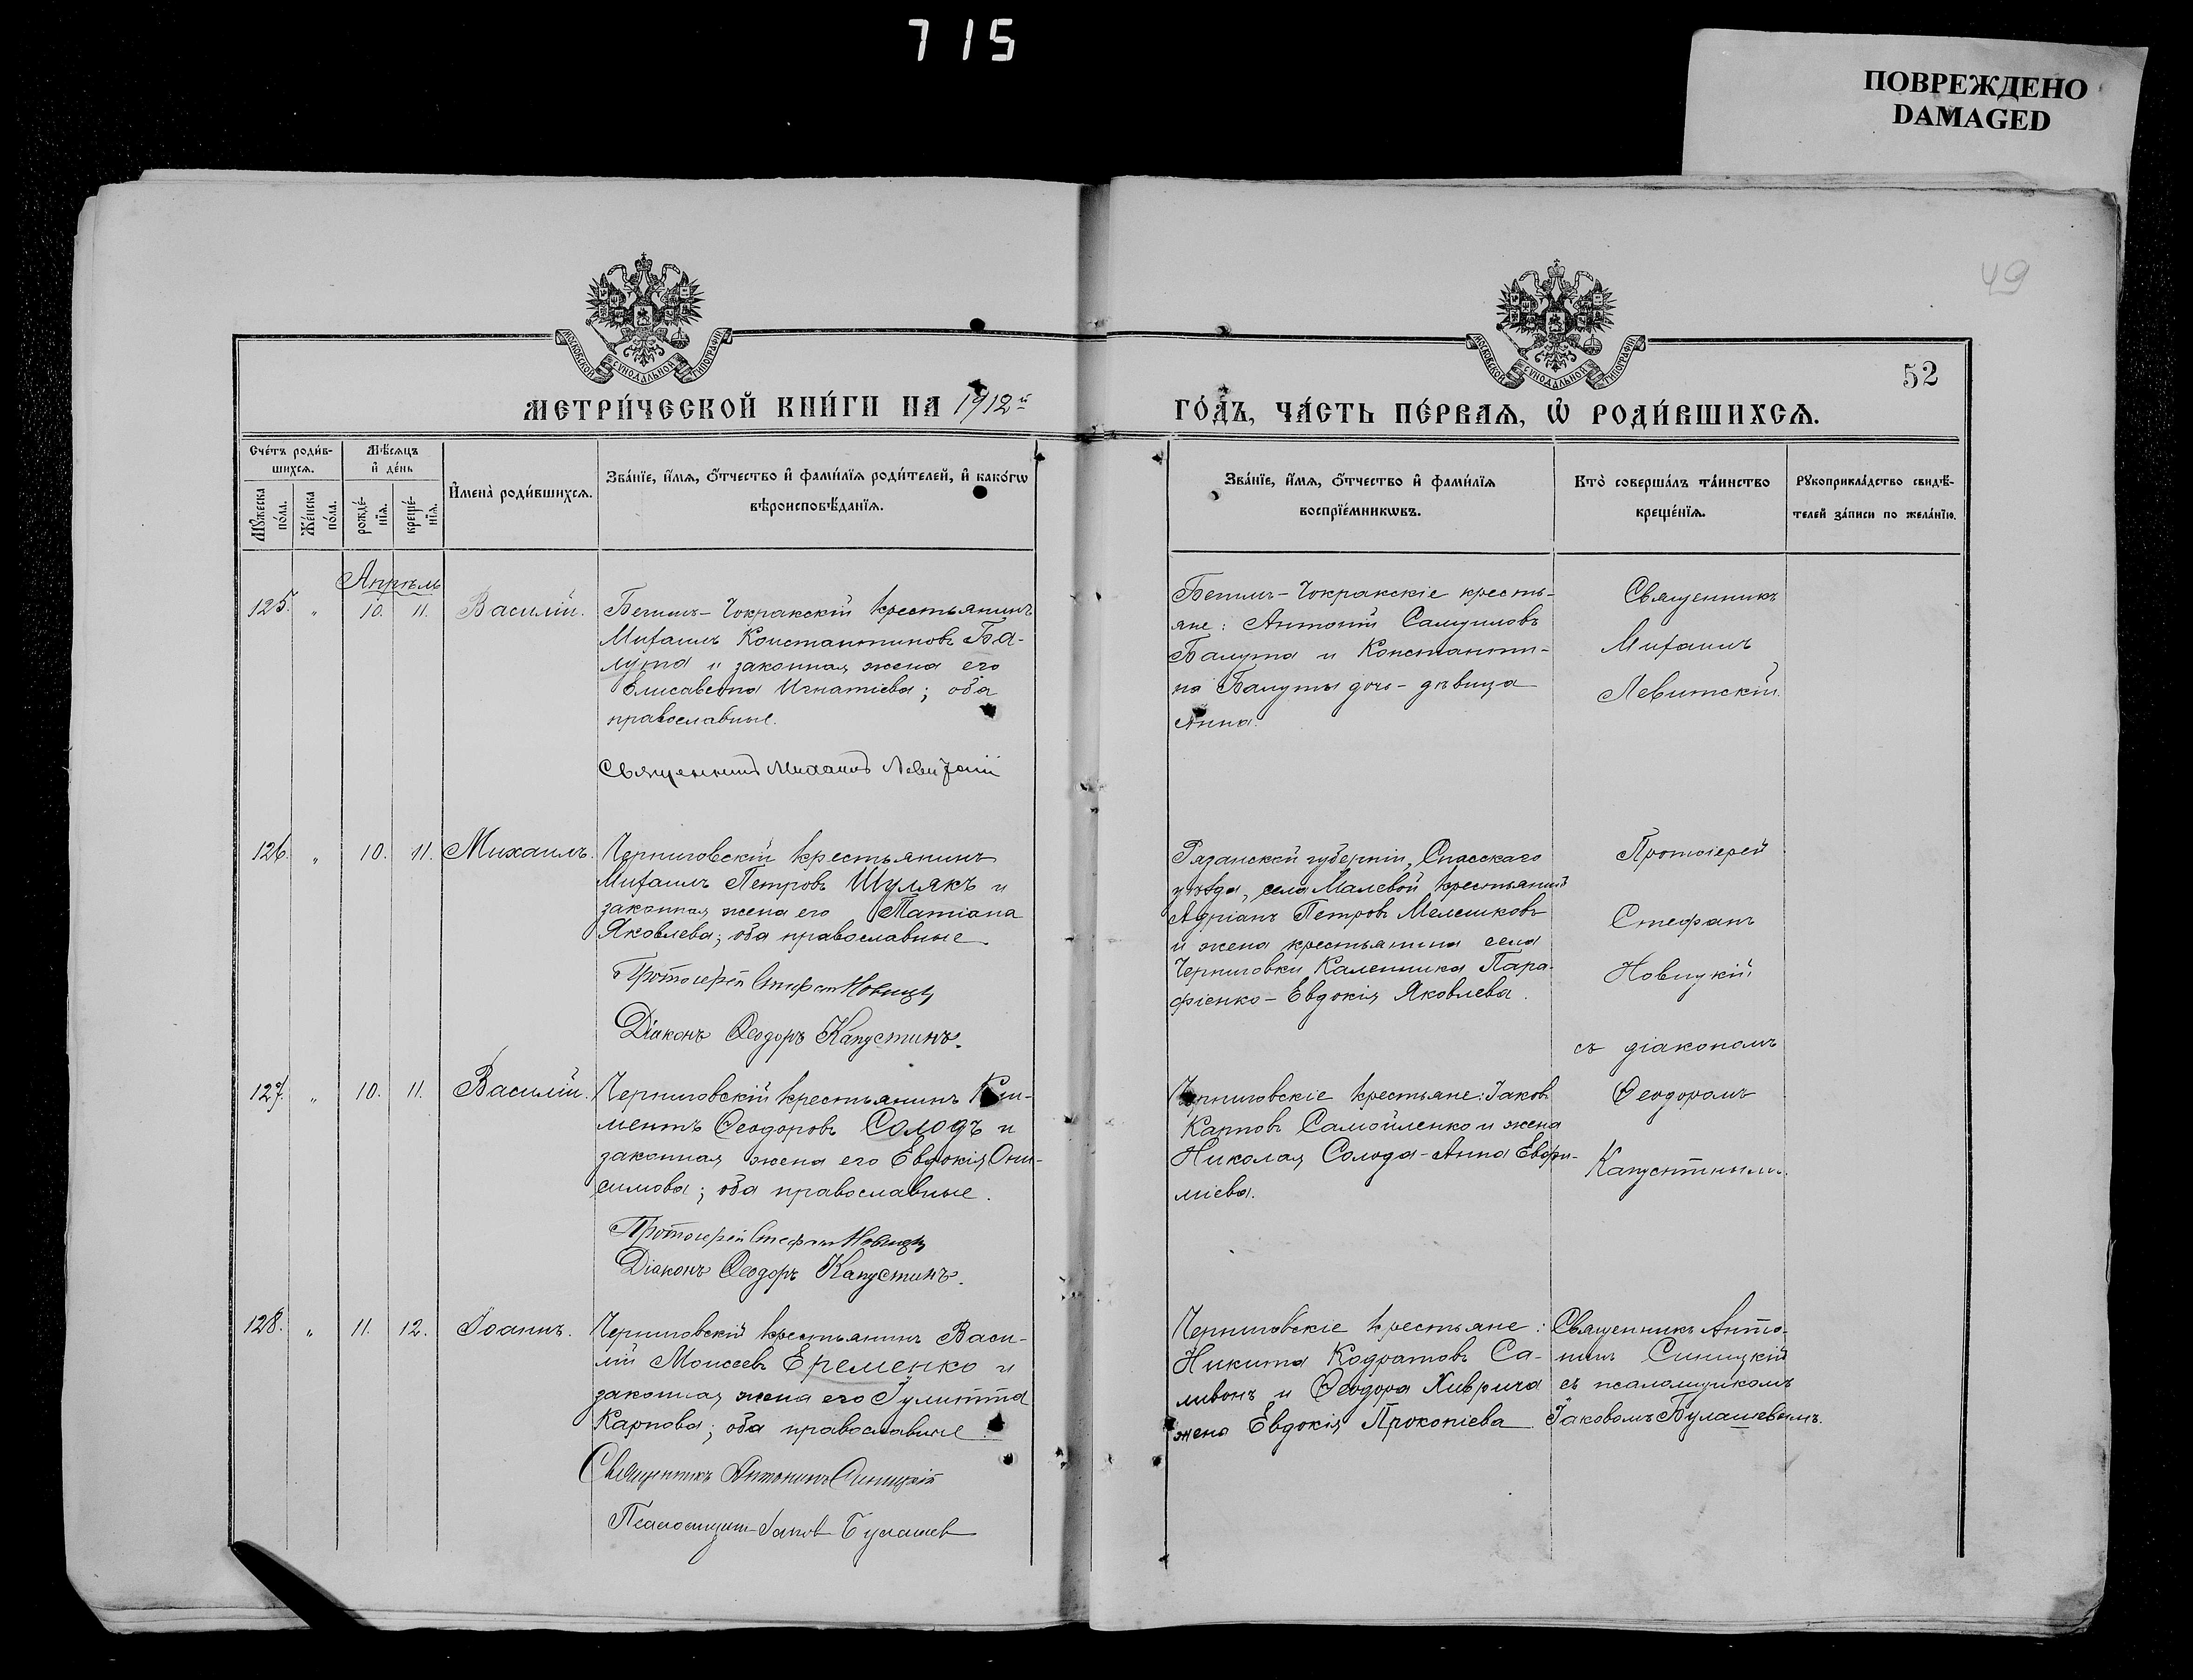 715
ПОВРЕЖДЕНО
DAMAGED
49
52
МОСКОВСКОЙ СѴНОДАЛЬНОЙ ТИПОГРАФІИ
МОСКОВСКОЙ СѴНОДАЛЬНОЙ ТИПОГРАФІИ
МЕТРИ́ЧЕСКОЙ КНИ́ГИ НА 1912й
ГО́ДЪ, ЧА́СТЬ ПЕ́РВАѦ, Ѡ҆ РОДИ́ВШИХСѦ.
Сче́тъ роди́в-
шихсѧ.
Мꙋ́жеска по́ла.
Же́нска по́ла.
Мѣ́сѧцъ
и҆ де́нь
рожде́-
нїѧ.
креще́-
нїѧ.
И҆мена̀ роди́вшихсѧ.
Зва́нїе, и҆́мѧ, ѻ҆́тчество и҆ фами́лїѧ роди́телей, и҆ како́гѡ
вѣроисповѣ́данїѧ.
Зва́нїе, и҆́мѧ, ѻ҆́тчество и҆ фами́лїѧ
воспрїе́мникѡвъ.
Кто̀ соверша́лъ та́инство
креще́нїѧ.
Рꙋкоприкла́дство свидѣ́-
телей за́писи по жела́нїю.
Апрѣль
125. " 10. 11. Василій.
Бегимъ-Чокракскій крестьянинъ
Михаилъ Константиновъ Ба-
лута и законная жена его
Елисавета Игнатіева; оба
православные.
Священникъ Михаилъ Левитскій
Бегимъ-Чокракскіе кресть-
яне: Антоній Самуиловъ
Балута и Константи-
на Балуты дочь-дѣвица
Анна.
Священникъ
Михаилъ
Левитскій.
126. " 10. 11. Михаилъ.
Черниговскій крестьянинъ
Михаилъ Петровъ Шулякъ и
законная жена его Татіана
Яковлева; оба православные.
Протоіерей Стефанъ Новицкій
Діаконъ Ѳеодоръ Капустинъ.
Рязанской губерніи, Спасскаго
уѣзда, села Малевой крестьянинъ
Адріанъ Петровъ Мелешковъ
и жена крестьянина села
Черниговки Каленника Пара-
фіенко-Евдокія Яковлева.
Протоіерей
Стефанъ
Новицкій
съ діакономъ
Ѳеодоромъ
Капустинымъ.
127. " 10. 11. Василій.
Черниговскій крестьянинъ Кли-
ментъ Ѳеодоровъ Солодъ и
законная жена его Евдокія Они-
симова; оба православные.
Протоіерей Стефанъ Новицкій
Діаконъ Ѳеодоръ Капустинъ.
Черниговскіе крестьяне: Іаковъ
Карповъ Самойленко и жена
Николая Солода-Анна Евфи-
міева.
128. " 11. 12. Іоаннъ.
Черниговскій крестьянинъ Васи-
лій Моисеевъ Еременко и
законная жена его Іулитта
Карпова; оба православные.
Священникъ Антонинъ Синицкій
Псаломщикъ Іаковъ Булашев
Черниговскіе крестьяне:
Никита Кодратовъ Са-
ливонъ и Ѳеодора Хиврича
жена Евдокія Прокопіева
Священникъ Анто-
нинъ Синицкій
съ псаломщикомъ
Іаковомъ Булашевымъ.